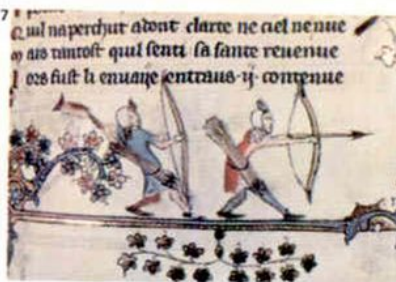 7
Q uil naperchut adont clarte ne ciel nenue
m ais tantost quil senti sa sante reuenue
l ors fust li enuaye entraus ij contenue